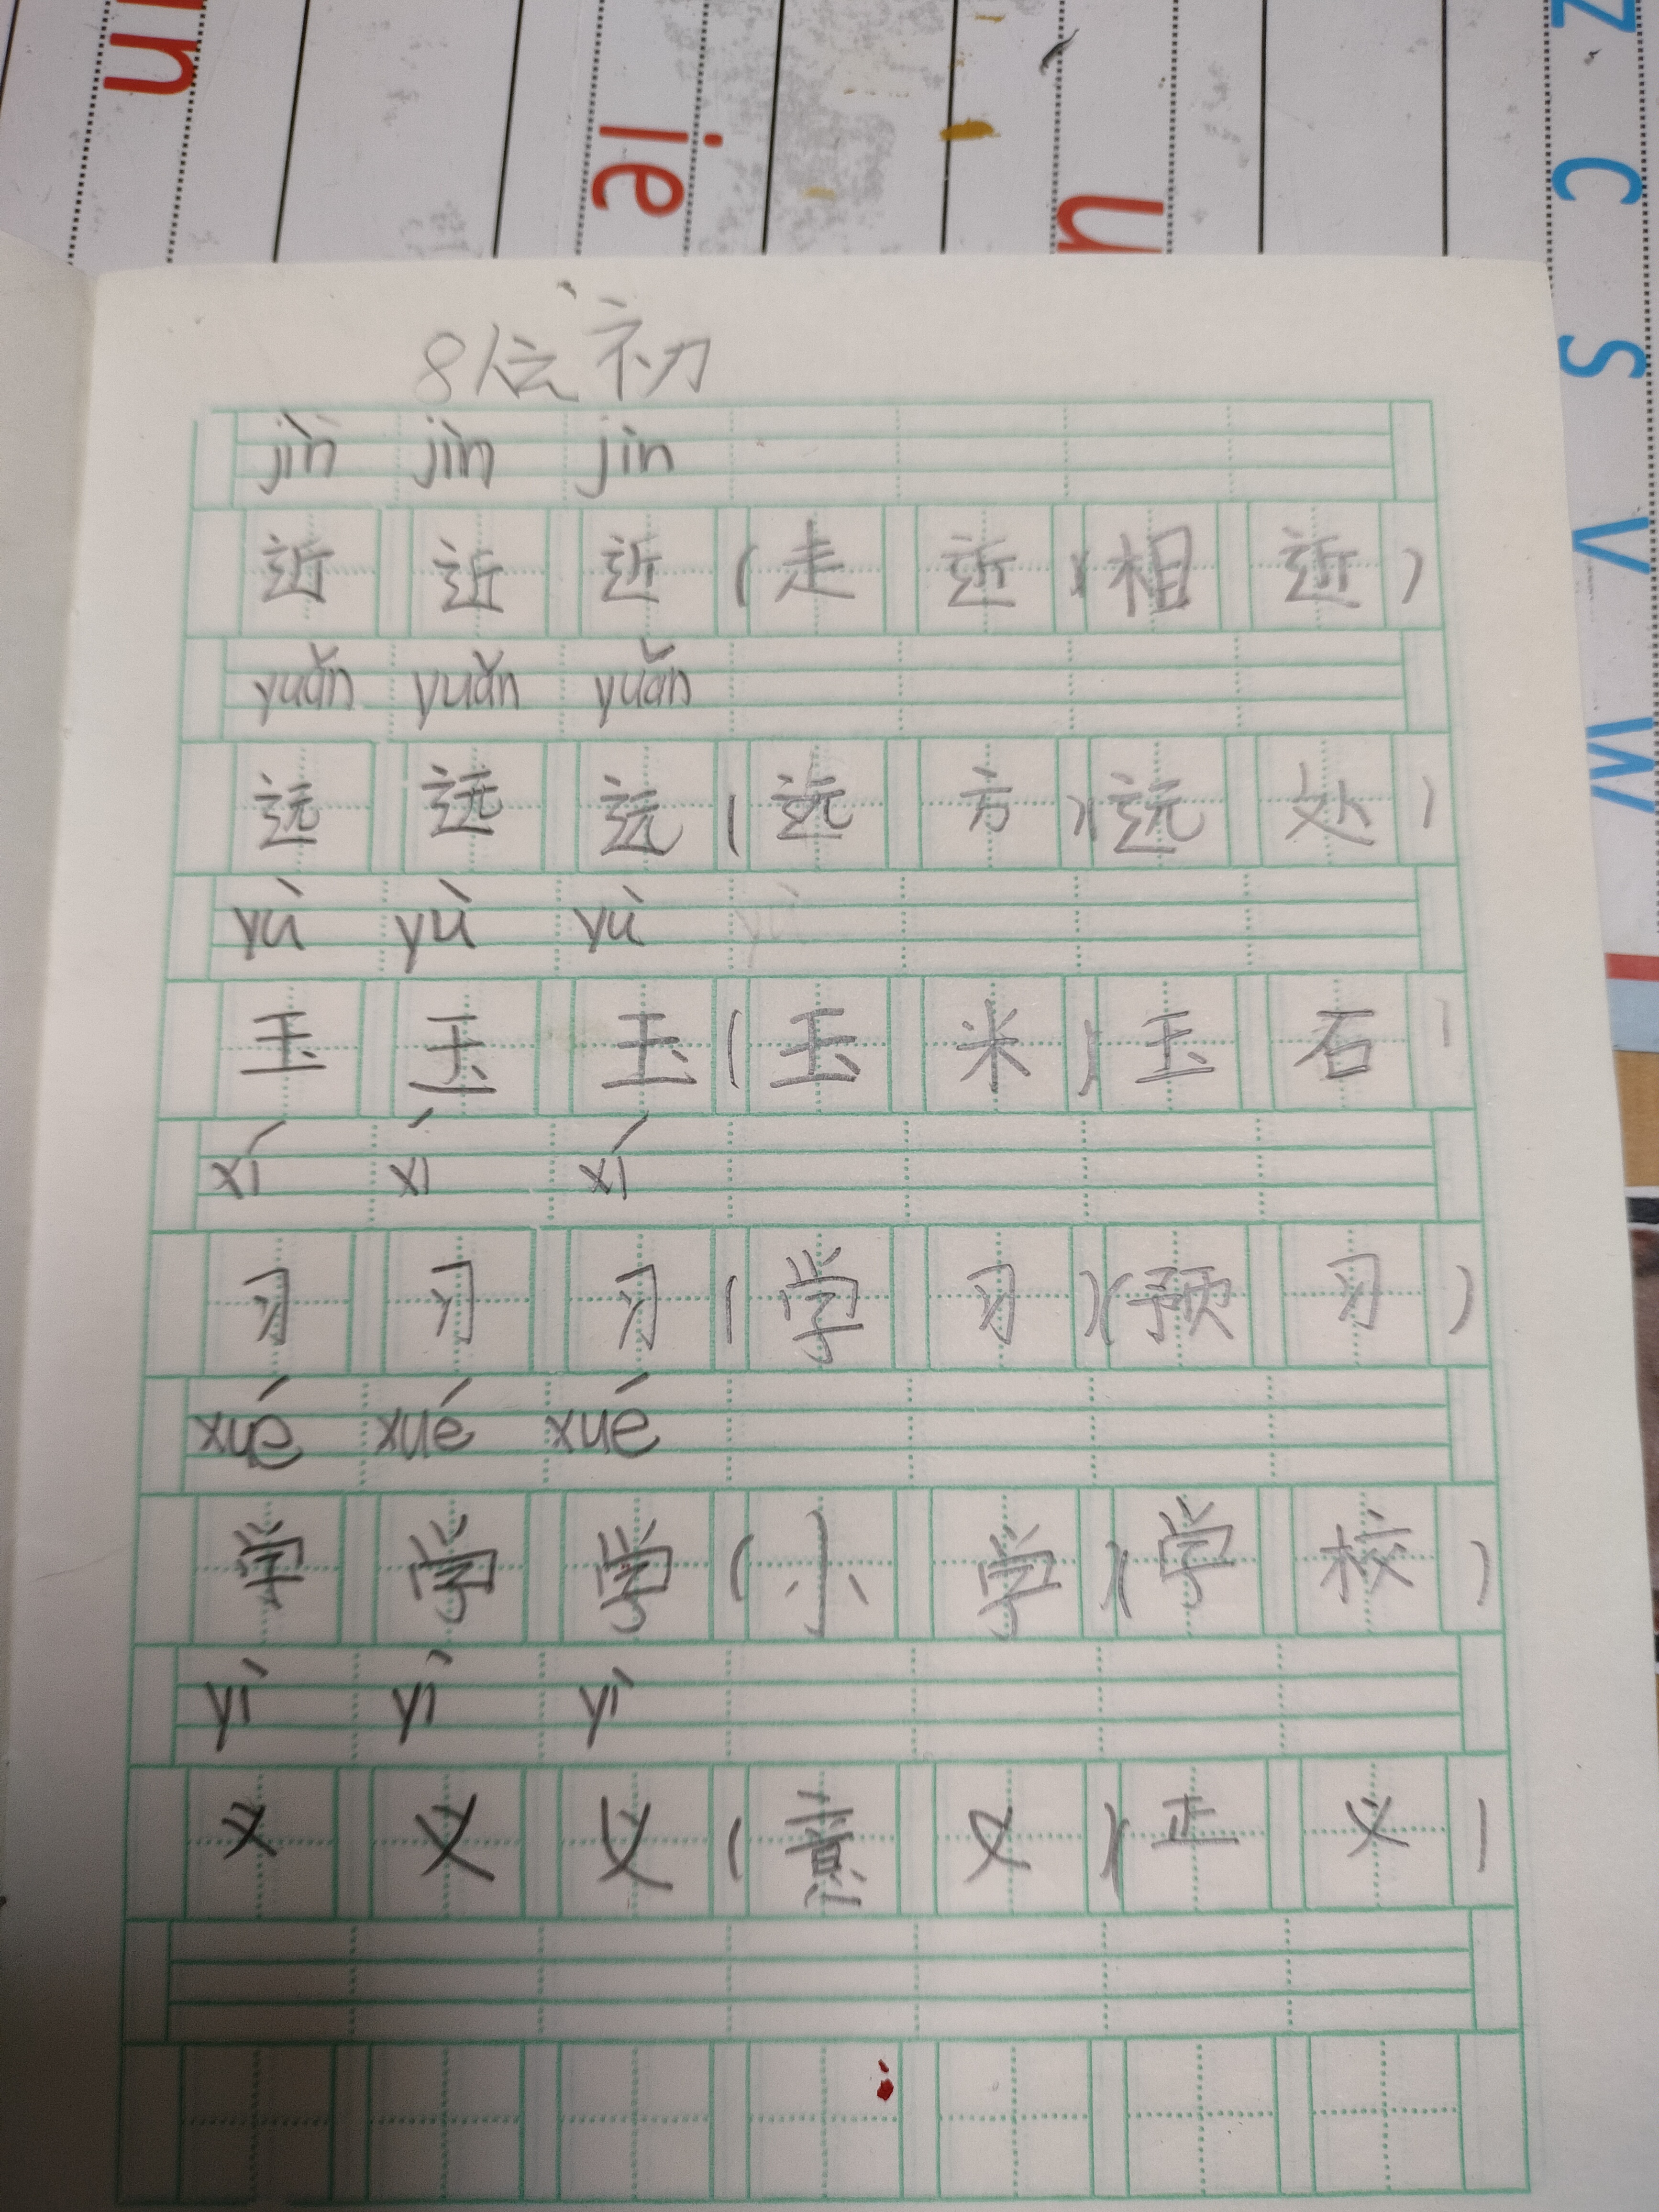 n ie u z c s v w
8人之初
jìn jìn jìn
近 近 近 ( 走 近 )( 相 近 )
yuǎn yuǎn yuǎn
远 远 远 ( 远 方 )( 远 处 )
yù yù yù yù
玉 玉 玉 ( 玉 米 ) 玉 石 )
xí xí xí
习 习 习 ( 学 习 )( 预 习 )
xué xué xué
学 学 学 ( 小 学 )( 学 校 )
yì yì yì
义 义 义 ( 意 义 )( 正 义 )